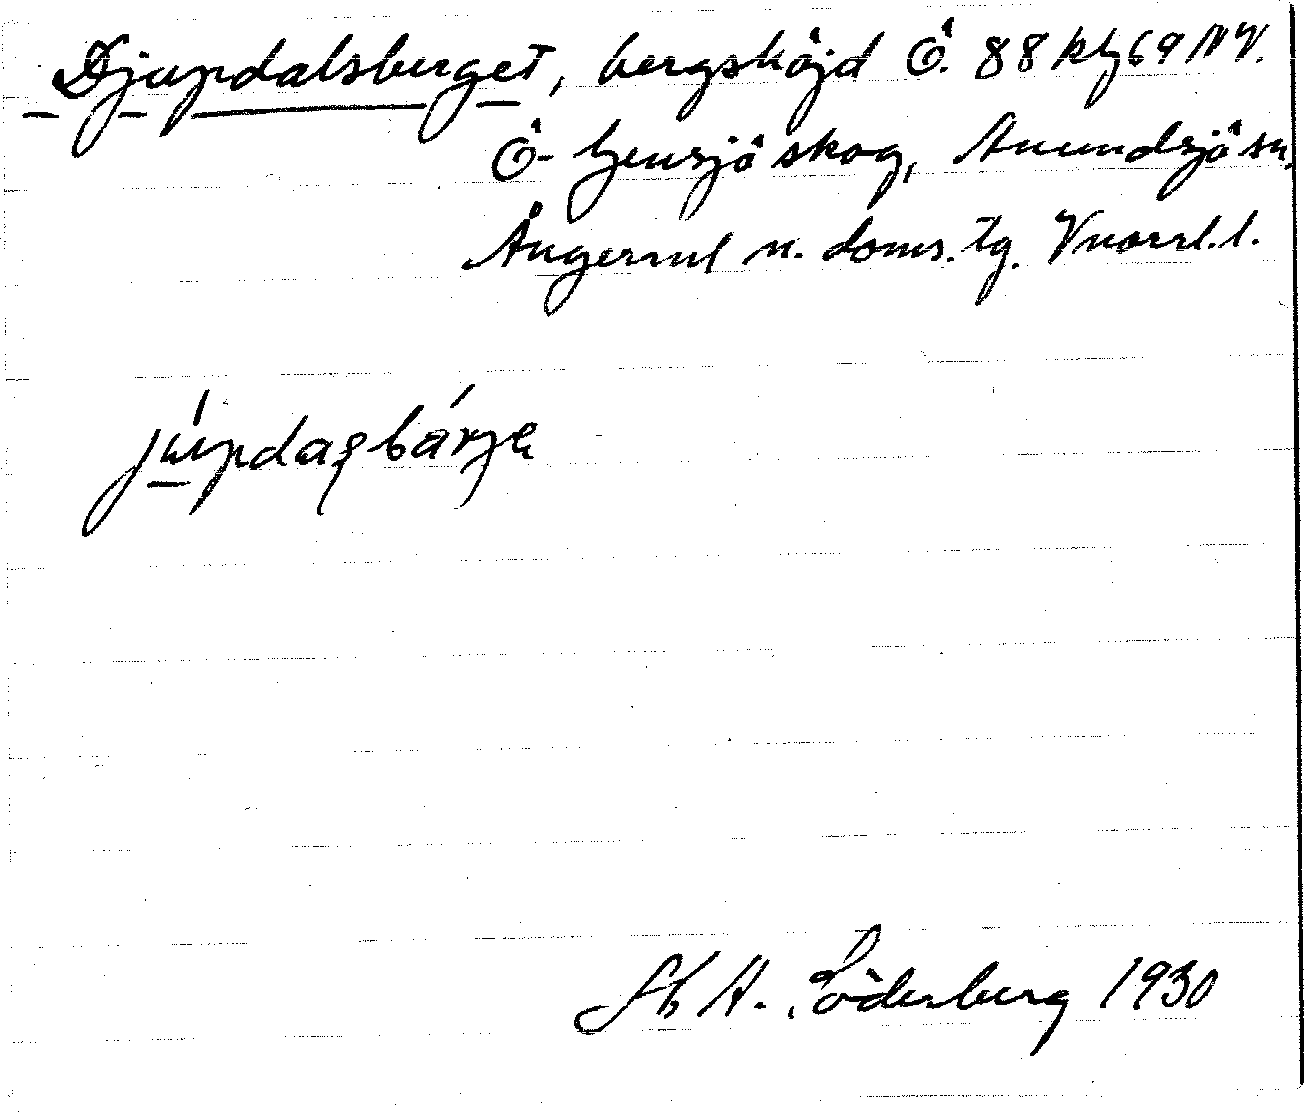 Djupdalsberget, bergshöjd Ö. 88 kbl 69 NV.
Ö- Gensjö skog, Anundsjö sn.
Ångerml n. doms. tg. Vnorrl. l.
júpdaꞩbárjə
St. H. Söderberg 1930